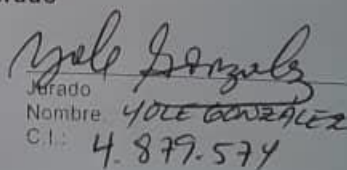 Yole Gonzalez
Jurado
Nombre YOLE GONZALEZ
C.I.: 4.879.574